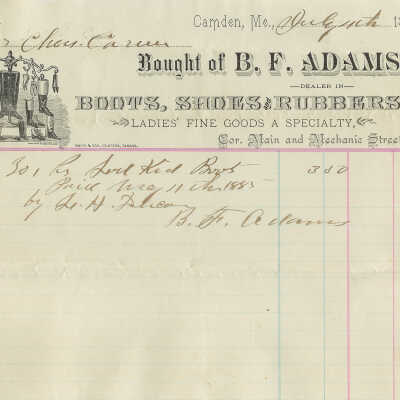 Camden, Me., July
Chas. Carver
Bought of B. F. ADAMS
DEALER IN
BOOTS, SHOES & RUBBERS
LADIES' FINE GOODS A SPECIALTY,
Cor. Main and Mechanic Street
30 1 Pr Kid Boot 3 00
Paid Aug 11th 1885
by H
B. F. Adams